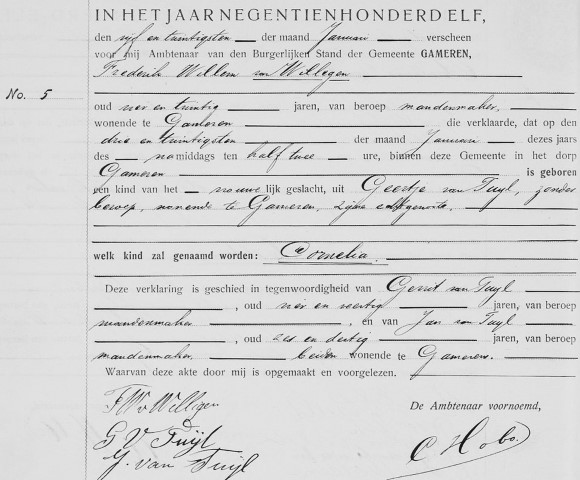 IN HET JAAR NEGENTIENHONDERD ELF,
den vijf en twintigsten der maand Januari verscheen
voor mij Ambtenaar van den Burgerlijken Stand der Gemeente GAMEREN,
Frederik Willem van Willigen
No. 5
oud vier en twintig jaren, van beroep mandenmaker,
wonende te Gameren die verklaarde, dat op den
drie en twintigsten der maand Januari dezes jaars
des namiddags ten half twee ure, binnen deze Gemeente in het dorp
Gameren is geboren
een kind van het vrouwelijk geslacht, uit Geertje van Tuyl, zonder
beroep, wonende te Gameren, zijne echtgenoote.
welk kind zal genaamd worden: Cornelia.
Deze verklaring is geschied in tegenwoordigheid van Gerrit van Tuyl
, oud vier en veertig jaren, van beroep
mandenmaker , en van Jan van Tuyl
, oud zes en dertig jaren, van beroep
mandenmaker, beiden wonende te Gameren.
Waarvan deze akte door mij is opgemaakt en voorgelezen.
F W v Willigen
De Ambtenaar voornoemd,
G V Tuijl
C Hobo.
J. van Tuijl